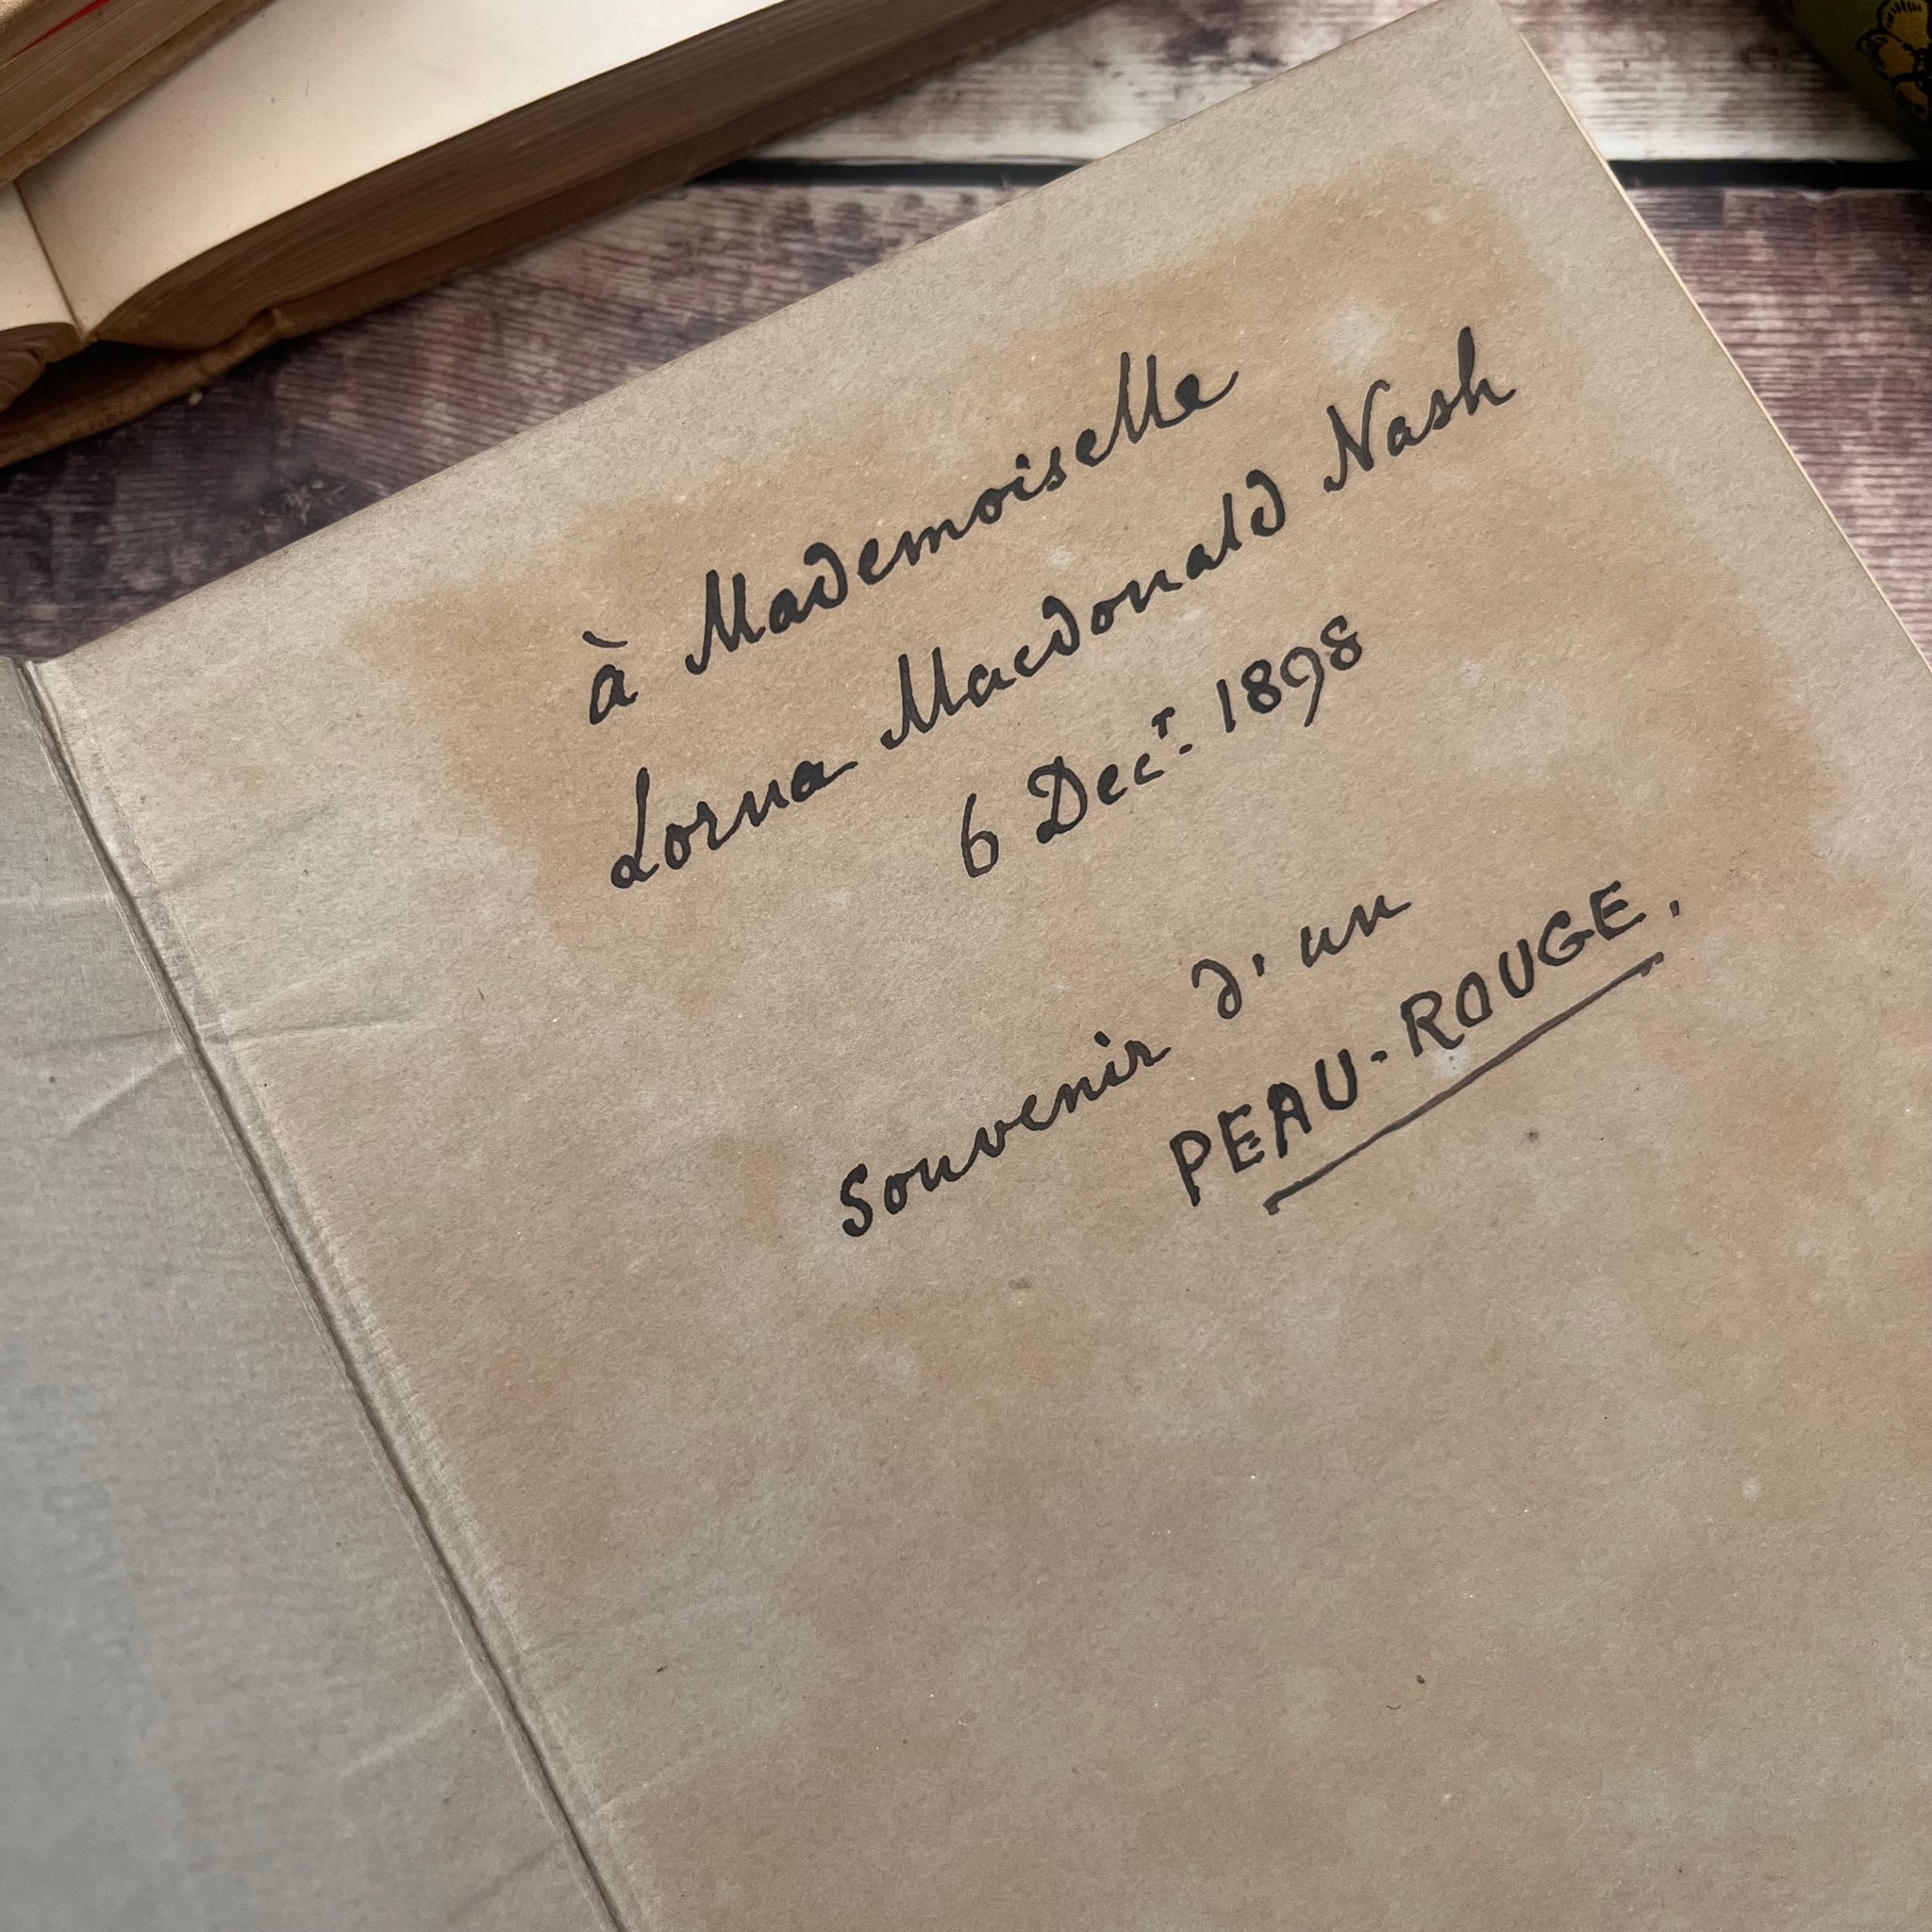 à Mademoiselle
Lorna Macdonald Nash
6 Decr. 1898
Souvenir d'un
PEAU-ROUGE.